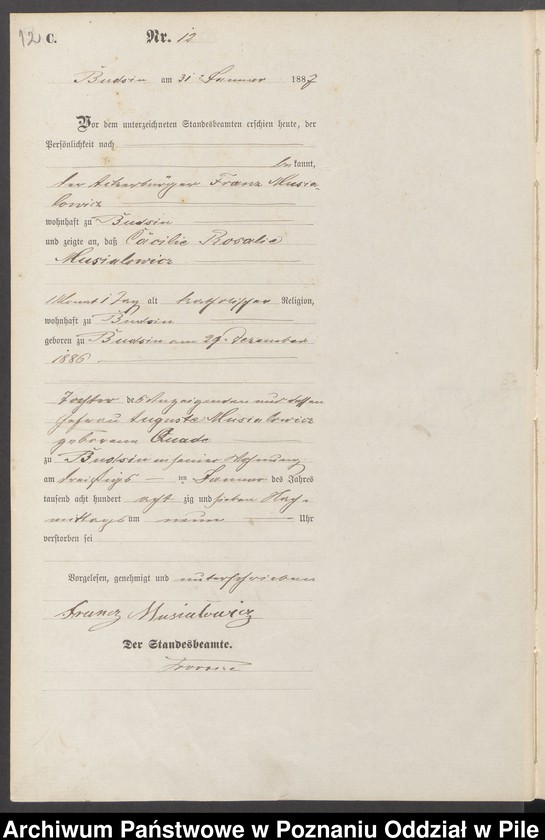 12 C. Nr. 12
Budsin am 31 Januar 1887
Vor dem unterzeichneten Standesbeamten erschien heute, der
Persönlichkeit nach
bekannt,
der Ackerbürger Franz Musia-
lowicz
wohnhaft zu Budsin
und zeigte an, daß Cäcilie Rosalie
Musialowicz
1 Monat 1 Tag alt katholischer Religion,
wohnhaft zu Budsin
geboren zu Budsin am 29. Dezember
1886
Tochter des Anzeigenden und dessen
Ehefrau Auguste Musialowicz
geborene Quade
zu Budsin in seiner Wohnung
am dreißigs im Januar des Jahres
tausend acht hundert acht zig und sieben Nach-
mittags um neun Uhr
verstorben sei
Vorgelesen, genehmigt und unterschrieben
Franz Musialowicz
Der Standesbeamte.
Archiwum Państwowe w Poznaniu Oddział w Pile